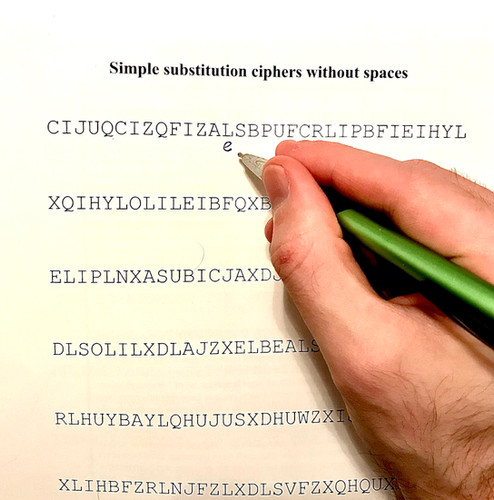 Simple substitution ciphers without spaces
CIJUQCIZQFIZALSBPUFCRLIPBFIEIHYL
e
XQIHYLOLILEIBFQXB
ELIPLNXASUBICJAXDJ
DLSOLILXDLAJZXELBEALS
RLHUYBAYLQHUJUSXDHUWZXI
XLIHBFZRLNJFZLXDLSVFZXQHQUX